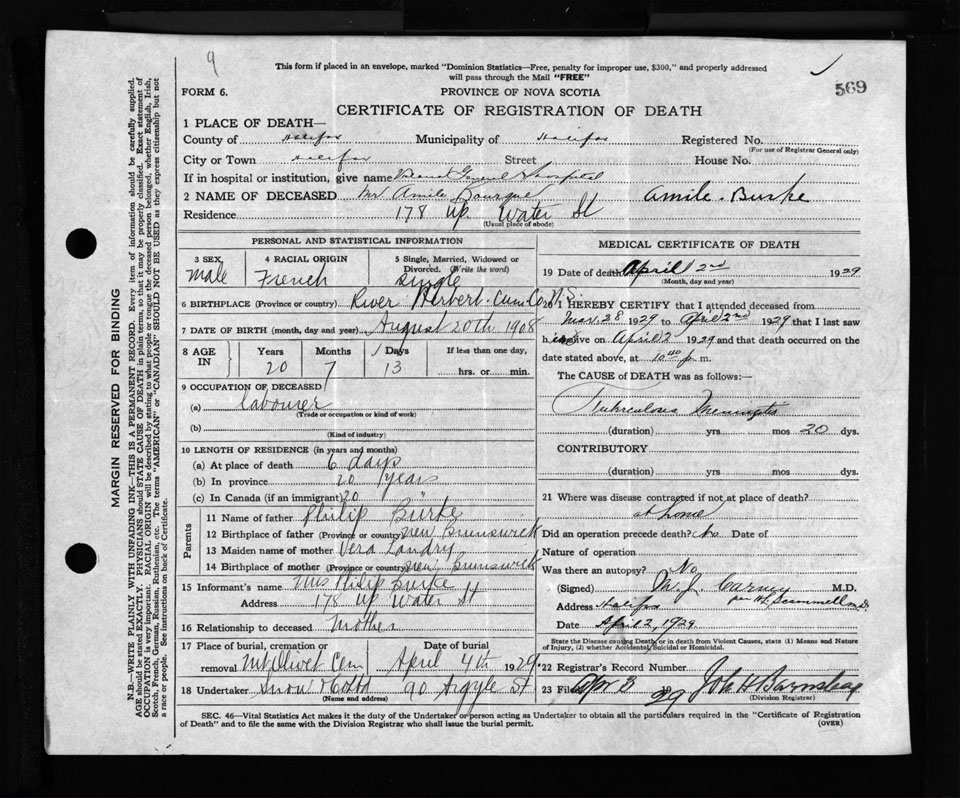 9
This form if placed in an envelope, marked "Dominion Statistics—Free, penalty for improper use, $300," and properly addressed
will pass through the Mail "FREE"
569
FORM 6.
PROVINCE OF NOVA SCOTIA
CERTIFICATE OF REGISTRATION OF DEATH
1 PLACE OF DEATH—
County of Halifax Municipality of Halifax Registered No.
(For use of Registrar General only)
City or Town Halifax Street House No.
If in hospital or institution, give name General Hospital
2 NAME OF DECEASED Mr Amile Bourque Amile. Burke
Residence 178 Up. Water St
(Usual place of abode)
PERSONAL AND STATISTICAL INFORMATION
3 SEX 4 RACIAL ORIGIN 5 Single, Married, Widowed or
Divorced. (Write the word)
Male French Single
6 BIRTHPLACE (Province or country) River Herbert. Cum. Co. N.S.
7 DATE OF BIRTH (month, day and year) August 20th 1908
8 AGE IN Years Months Days If less than one day,
20 7 13 hrs. or min.
9 OCCUPATION OF DECEASED
(a) labourer
(Trade or occupation or kind of work)
(b)
(Kind of industry)
10 LENGTH OF RESIDENCE (in years and months)
(a) At place of death 6 days
(b) In province 20 years
(c) In Canada (if an immigrant) 20 "
Parents
11 Name of father Philip Burke
12 Birthplace of father (Province or country) New Brunswick
13 Maiden name of mother Vera Landry
14 Birthplace of mother (Province or country) New Brunswick
15 Informant's name Mrs Philip Burke
Address 178 Up Water St
16 Relationship to deceased Mother
17 Place of burial, cremation or Date of burial
removal Mt Olivet Cem April 4th 1929
18 Undertaker Snow & Co Ltd 90 Argyle St
(Name and address)
MEDICAL CERTIFICATE OF DEATH
19 Date of death April 2nd 1929
(Month, day and year)
20 I HEREBY CERTIFY that I attended deceased from
Mar. 28 1929 to April 2nd 1929 that I last saw
him alive on April 2 1929 and that death occurred on the
date stated above, at 10 40 p. m.
The CAUSE OF DEATH was as follows:—
Tuberculosis Meningitis
(duration) yrs mos 20 dys.
CONTRIBUTORY
(duration) yrs. mos dys.
21 Where was disease contracted if not at place of death?
at home
Did an operation precede death? No Date of
Nature of operation
Was there an autopsy? No
(Signed) W. J. Carney M.D.
per Scammell M.D.
Address Halifax
Date April 2, 1929
State the Disease causing Death, or in death from Violent Causes, state (1) Means and Nature
of Injury, (2) whether Accidental, Suicidal or Homicidal.
22 Registrar's Record Number
23 Filed Apr 3 29 John H Barnstead
(Division Registrar)
SEC. 46—Vital Statistics Act makes it the duty of the Undertaker or person acting as Undertaker to obtain all the particulars required in the "Certificate of Registration
of Death" and to file the same with the Division Registrar who shall issue the burial permit.
(OVER)
MARGIN RESERVED FOR BINDING
N.B.—WRITE PLAINLY WITH UNFADING INK—THIS IS A PERMANENT RECORD. Every item of information should be carefully supplied.
AGE should be stated EXACTLY. PHYSICIANS should STATE CAUSE OF DEATH in plain terms, so that it may be properly classified. Exact statement of
OCCUPATION is very important. RACIAL ORIGIN will be described by stating to what people or tongue the deceased person belonged, whether English, Irish,
Scotch, French, German, Russian, Ruthenian, etc. The terms "AMERICAN" or "CANADIAN" SHOULD NOT BE USED as they express citizenship but not
a race or people. See instructions on back of Certificate.